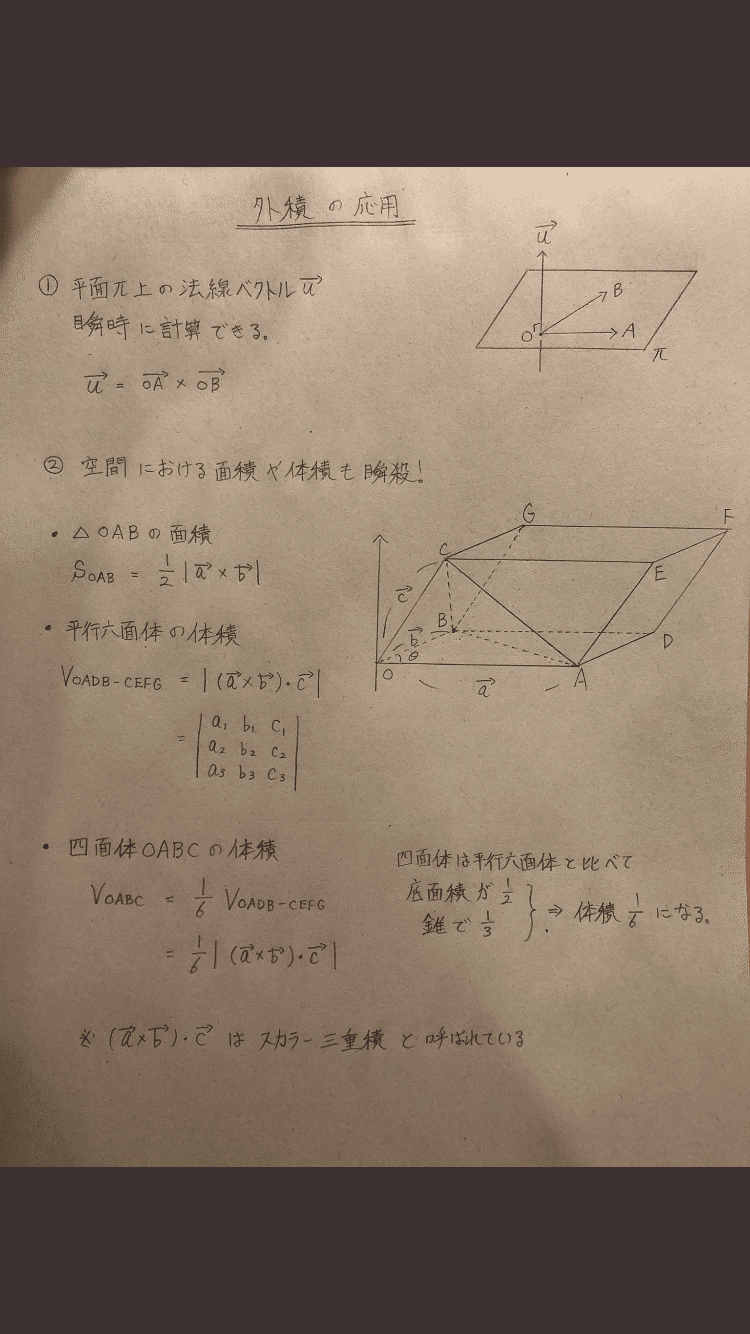 外積の応用
① 平面π上の法線ベクトルu→
瞬時に計算できる。
u→ = OA→ × OB→
u→
B
O
A
π
② 空間における面積や体積も瞬殺!
・△OABの面積
S_OAB = 1/2 |a→×b→|
・平行六面体の体積
V_OADB-CEFG = |(a→×b→)・c→|
= | a₁ b₁ c₁
a₂ b₂ c₂
a₃ b₃ c₃ |
G
F
C
E
c→
B
b→
D
θ
O
a→
A
・四面体OABCの体積
V_OABC = 1/6 V_OADB-CEFG
= 1/6 |(a→×b→)・c→|
四面体は平行六面体と比べて
底面積が 1/2
錐で 1/3
} ⇒ 体積 1/6 になる。
※ (a→×b→)・c→ は スカラー三重積 と呼ばれている